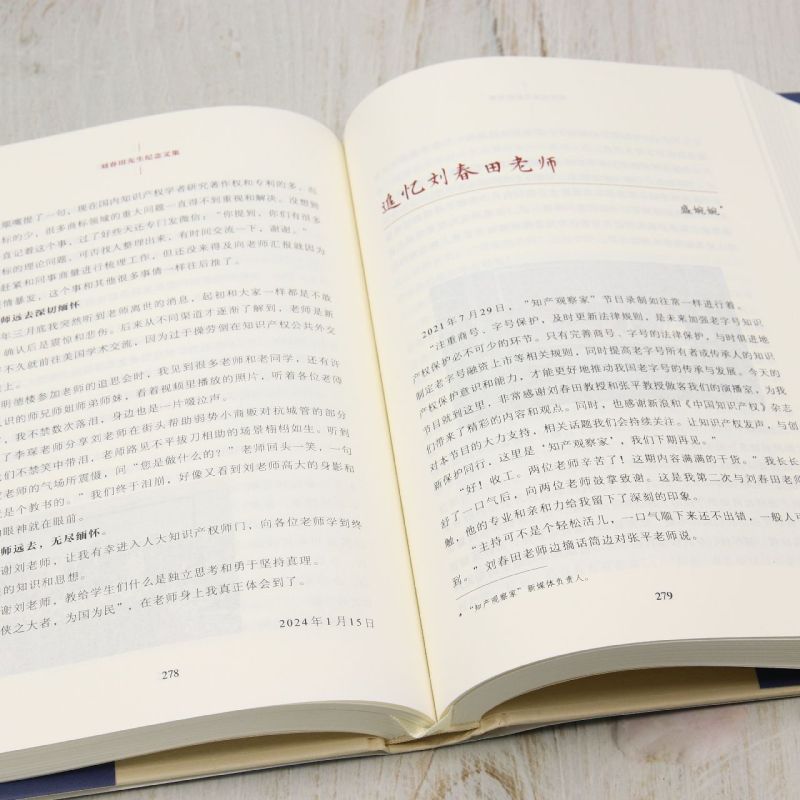 刘春田先生纪念文集
嘴慢了一句，现在国内知识产权学者研究著作权和专利的多，在
标的少，很多商标领域的重大问题一直得不到重视和解决。没想到
直记着这个事，过了好些天还专门发微信：“你提到，你们有很多
标的理论问题，可否找人整理出来，有时间交流一下，谢谢。”
赶紧和同事商量进行梳理工作，但还没来得及向老师汇报就因为
情暴发，这个事和其他很多事情一样往后推了。
师远去深切缅怀
年三月底我突然听到老师离世的消息，起初和大家一样都是不敢
确认后是震惊和悲伤。后来从不同渠道才逐渐了解到，老师是新
不久就前往美国学术交流，因为过于操劳倒在知识产权公共外交
上。
明德楼参加老师的追思会时，我见到很多老师和老同学，还有许
识的师兄师姐师弟师妹，看着视频里播放的照片，听着各位老师
，我不禁数次落泪，身边也是一片啜泣声。
了李琛老师分享刘老师在街头帮助弱势小商贩对抗城管的部分
们不禁笑中带泪，老师路见不平拔刀相助的场景栩栩如生。听到
老师的气场所震慑，问“您是做什么的？”老师回头一笑，一句
是个教书的。”我们终于泪崩，好像又看到刘老师高大的身影和
的眼神就在眼前。
师远去，无尽缅怀。
谢刘老师，让我有幸进入人大知识产权师门，向各位老师学到终
的知识和思想。
谢刘老师，教给学生们什么是独立思考和勇于坚持真理。
侠之大者，为国为民”，在老师身上我真正体会到了。
2024年1月15日
278
追忆刘春田老师
盛婉婉*
2021年7月29日，“知产观察家”节目录制如往常一样进行着。
“注重商号、字号保护，及时更新法律规则，是未来加强老字号知识
产权保护必不可少的环节。只有完善商号、字号的法律保护，与时俱进地
制定老字号融资上市等相关规则，同时提高老字号所有者或传承人的知识
产权保护意识和能力，才能更好地推动我国老字号的传承与发展。今天的
节目就到这里，非常感谢刘春田教授和张平教授做客我们的演播室，为我
们带来了精彩的内容和观点。同时，也感谢新浪和《中国知识产权》杂志
对本节目的大力支持，相关话题我们会持续关注。让知识产权发声，与创
新保护同行，这里是‘知产观察家’，我们下期再见。”
“好！收工。两位老师辛苦了！这期内容满满的干货。”我长长
好了一口气后，向两位老师鼓掌致谢。这是我第二次与刘春田老师
触，他的专业和亲和力给我留下了深刻的印象。
“主持可不是个轻松活儿，一口气顺下来还不出错，一般人可
到。”刘春田老师边摘话筒边对张平老师说。
* “知产观察家”新媒体负责人。
279